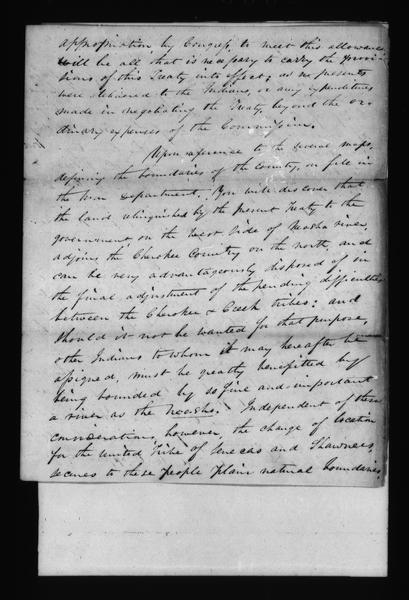 appropriation by Congress, to meet this allowance,
will be all that is necessary to carry the provi-
sions of this Treaty into effect; as no presents
were delivered to the Indians, or any expenditures
made in negotiating the Treaty, beyond the or-
dinary expenses of the Commission.
Upon reference to the several maps,
defining the boundaries of the country, on file in
the War Department, You will discover that
the land relinquished by the present Treaty to the
government, on the West side of Neosho river,
adjoins the Cherokee Country on the north, and
can be very advantageously disposed of in
the final adjustment of the pending difficulties
between the Cherokee & Creek tribes: and
should it not be wanted for that purpose,
other Indians to whom it may hereafter be
assigned, must be greatly benefitted by
being bounded by so fine and important
a river as the Neosho. Independent of these
considerations, however, the change of location
for the United Tribe of Senecas and Shawnees,
secures to these people plain natural boundaries